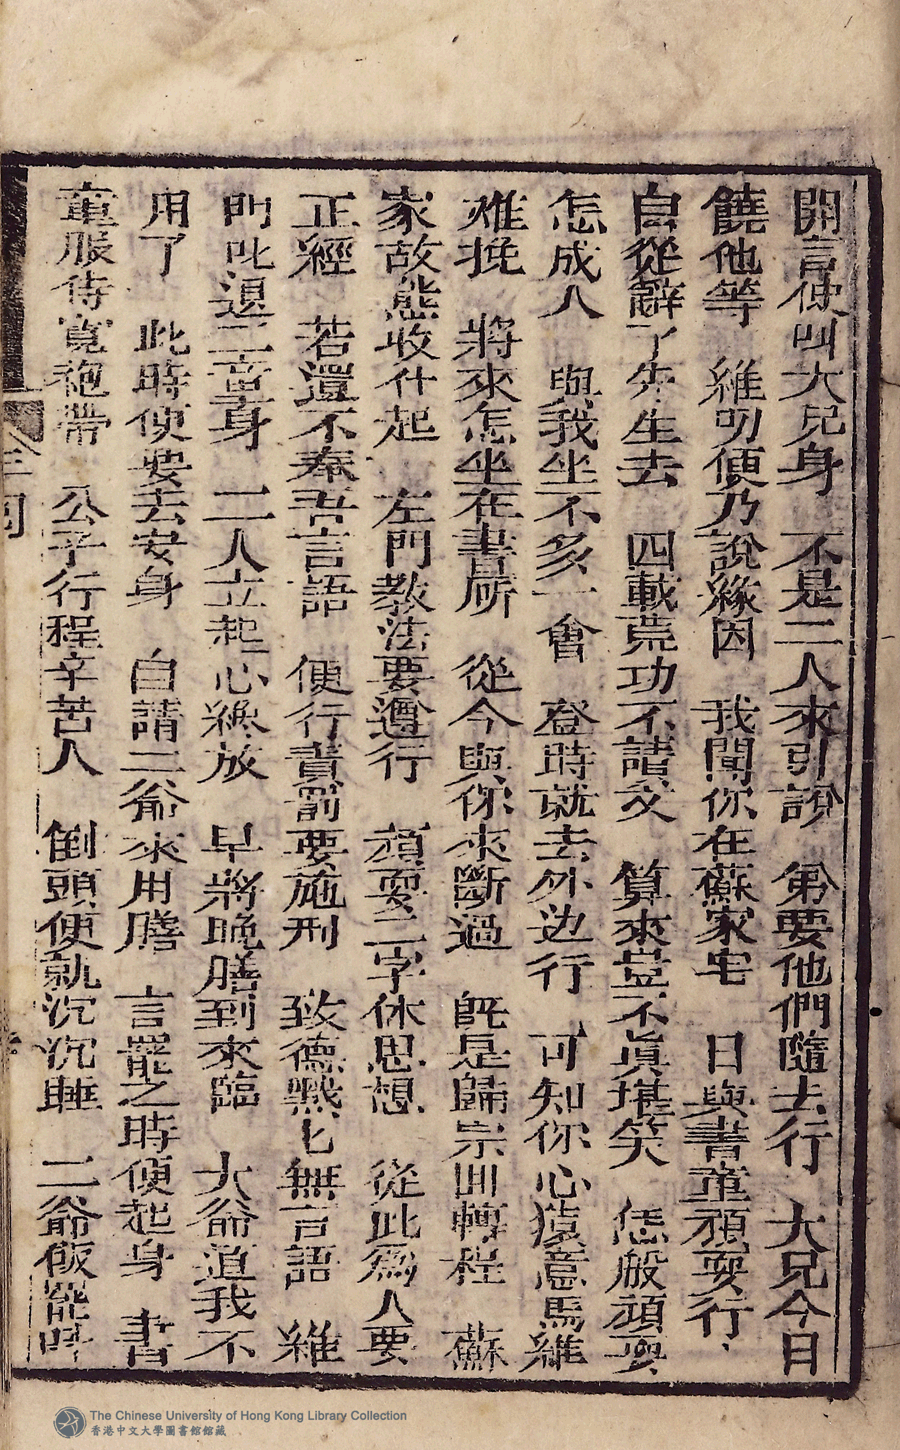 開言使叫大兄身　不是二人來引說　弟要他們隨去行　大兄今日
饒他等　維明便乃說緣因　我聞你在蘇家宅　日與書童頑耍行
自從辭了先生去　四載荒功不讀文　算來豈不眞堪笑　恁般頑耍
怎成人　與我坐不多一會　登時就去外边行　可知你心猿意馬難
难挽　將來怎坐在書房　從今與你來斷過　既是歸宗回轉程　蘇
家故態收什起　左門教法要遵行　頑耍二字休思想　從此爲人要
正經　若還不奉吾言語　便行責罰要施刑　致德默匕無言語　維
門叱退二童身　二人立起心纔放　早將晚膳到來臨　大爺道我不
用了　此時便要去安身　自請二爺來用膳　言罷之時便起身　書
童服侍寬袍帶　公子行程辛苦人　倒頭便就沉沉睡　二爺飯罷時
The Chinese University of Hong Kong Library Collection
香港中文大學圖書館館藏